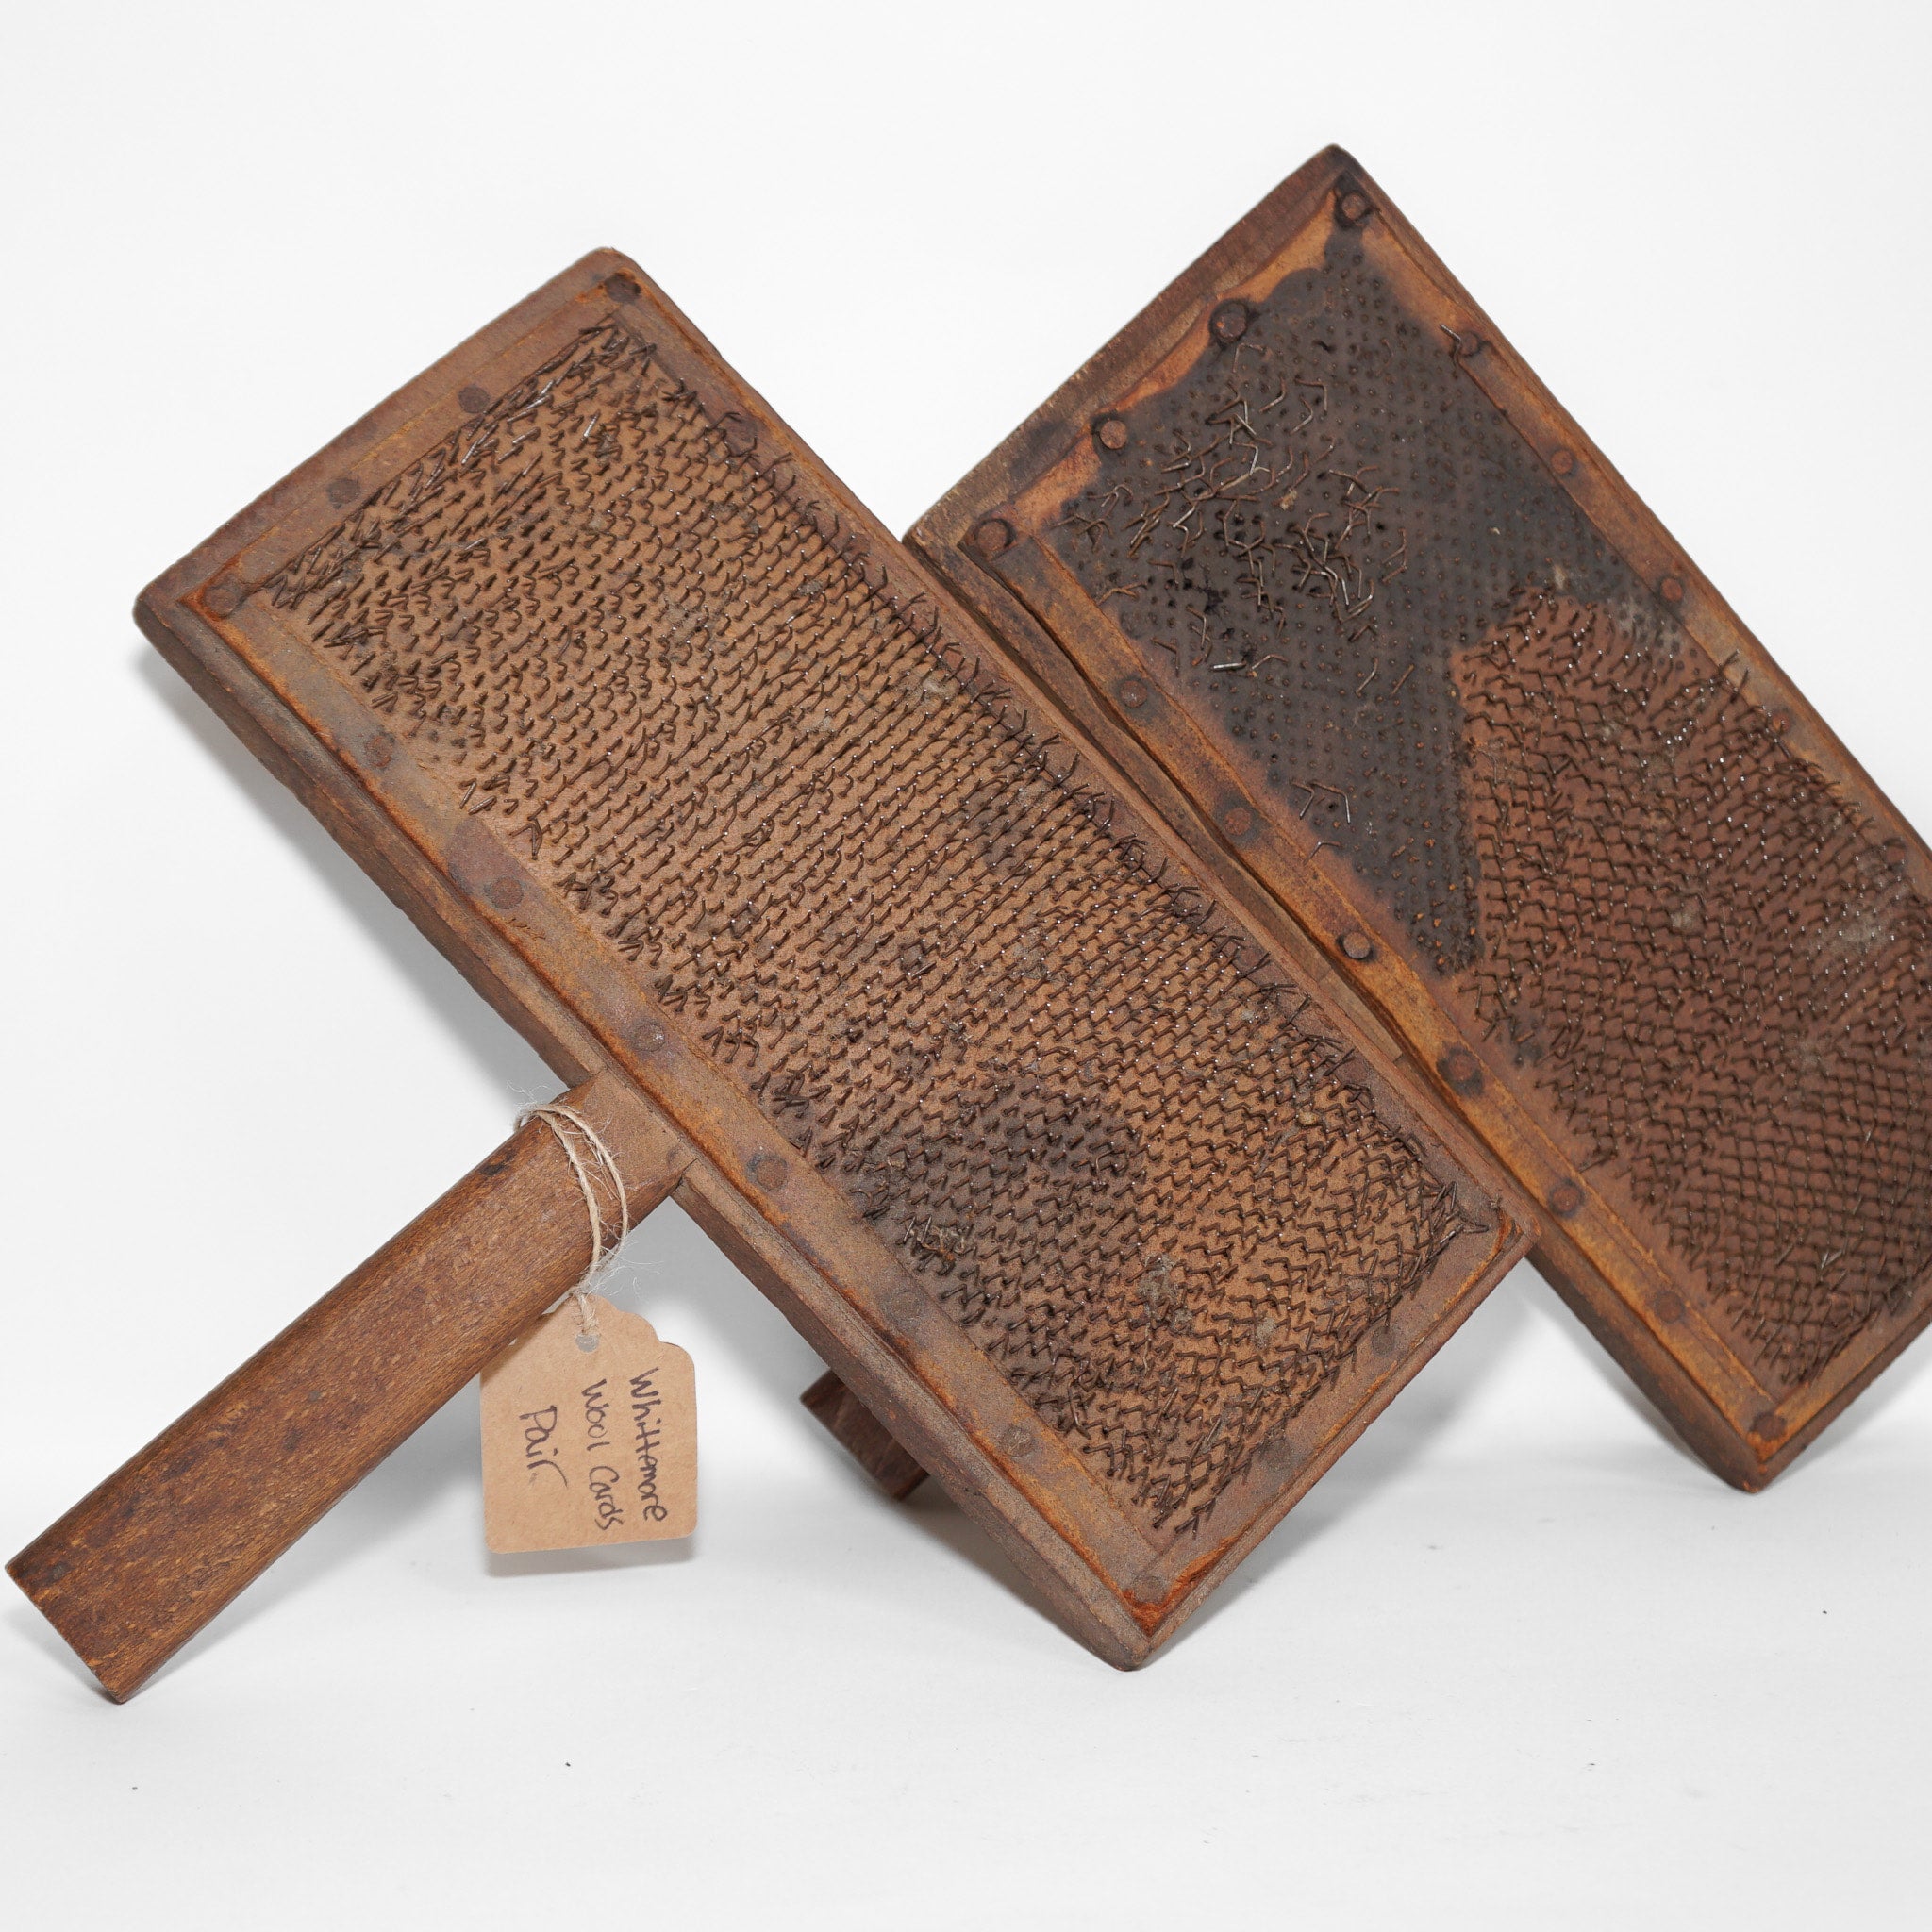 Whittemore
Wool Cards
Pair